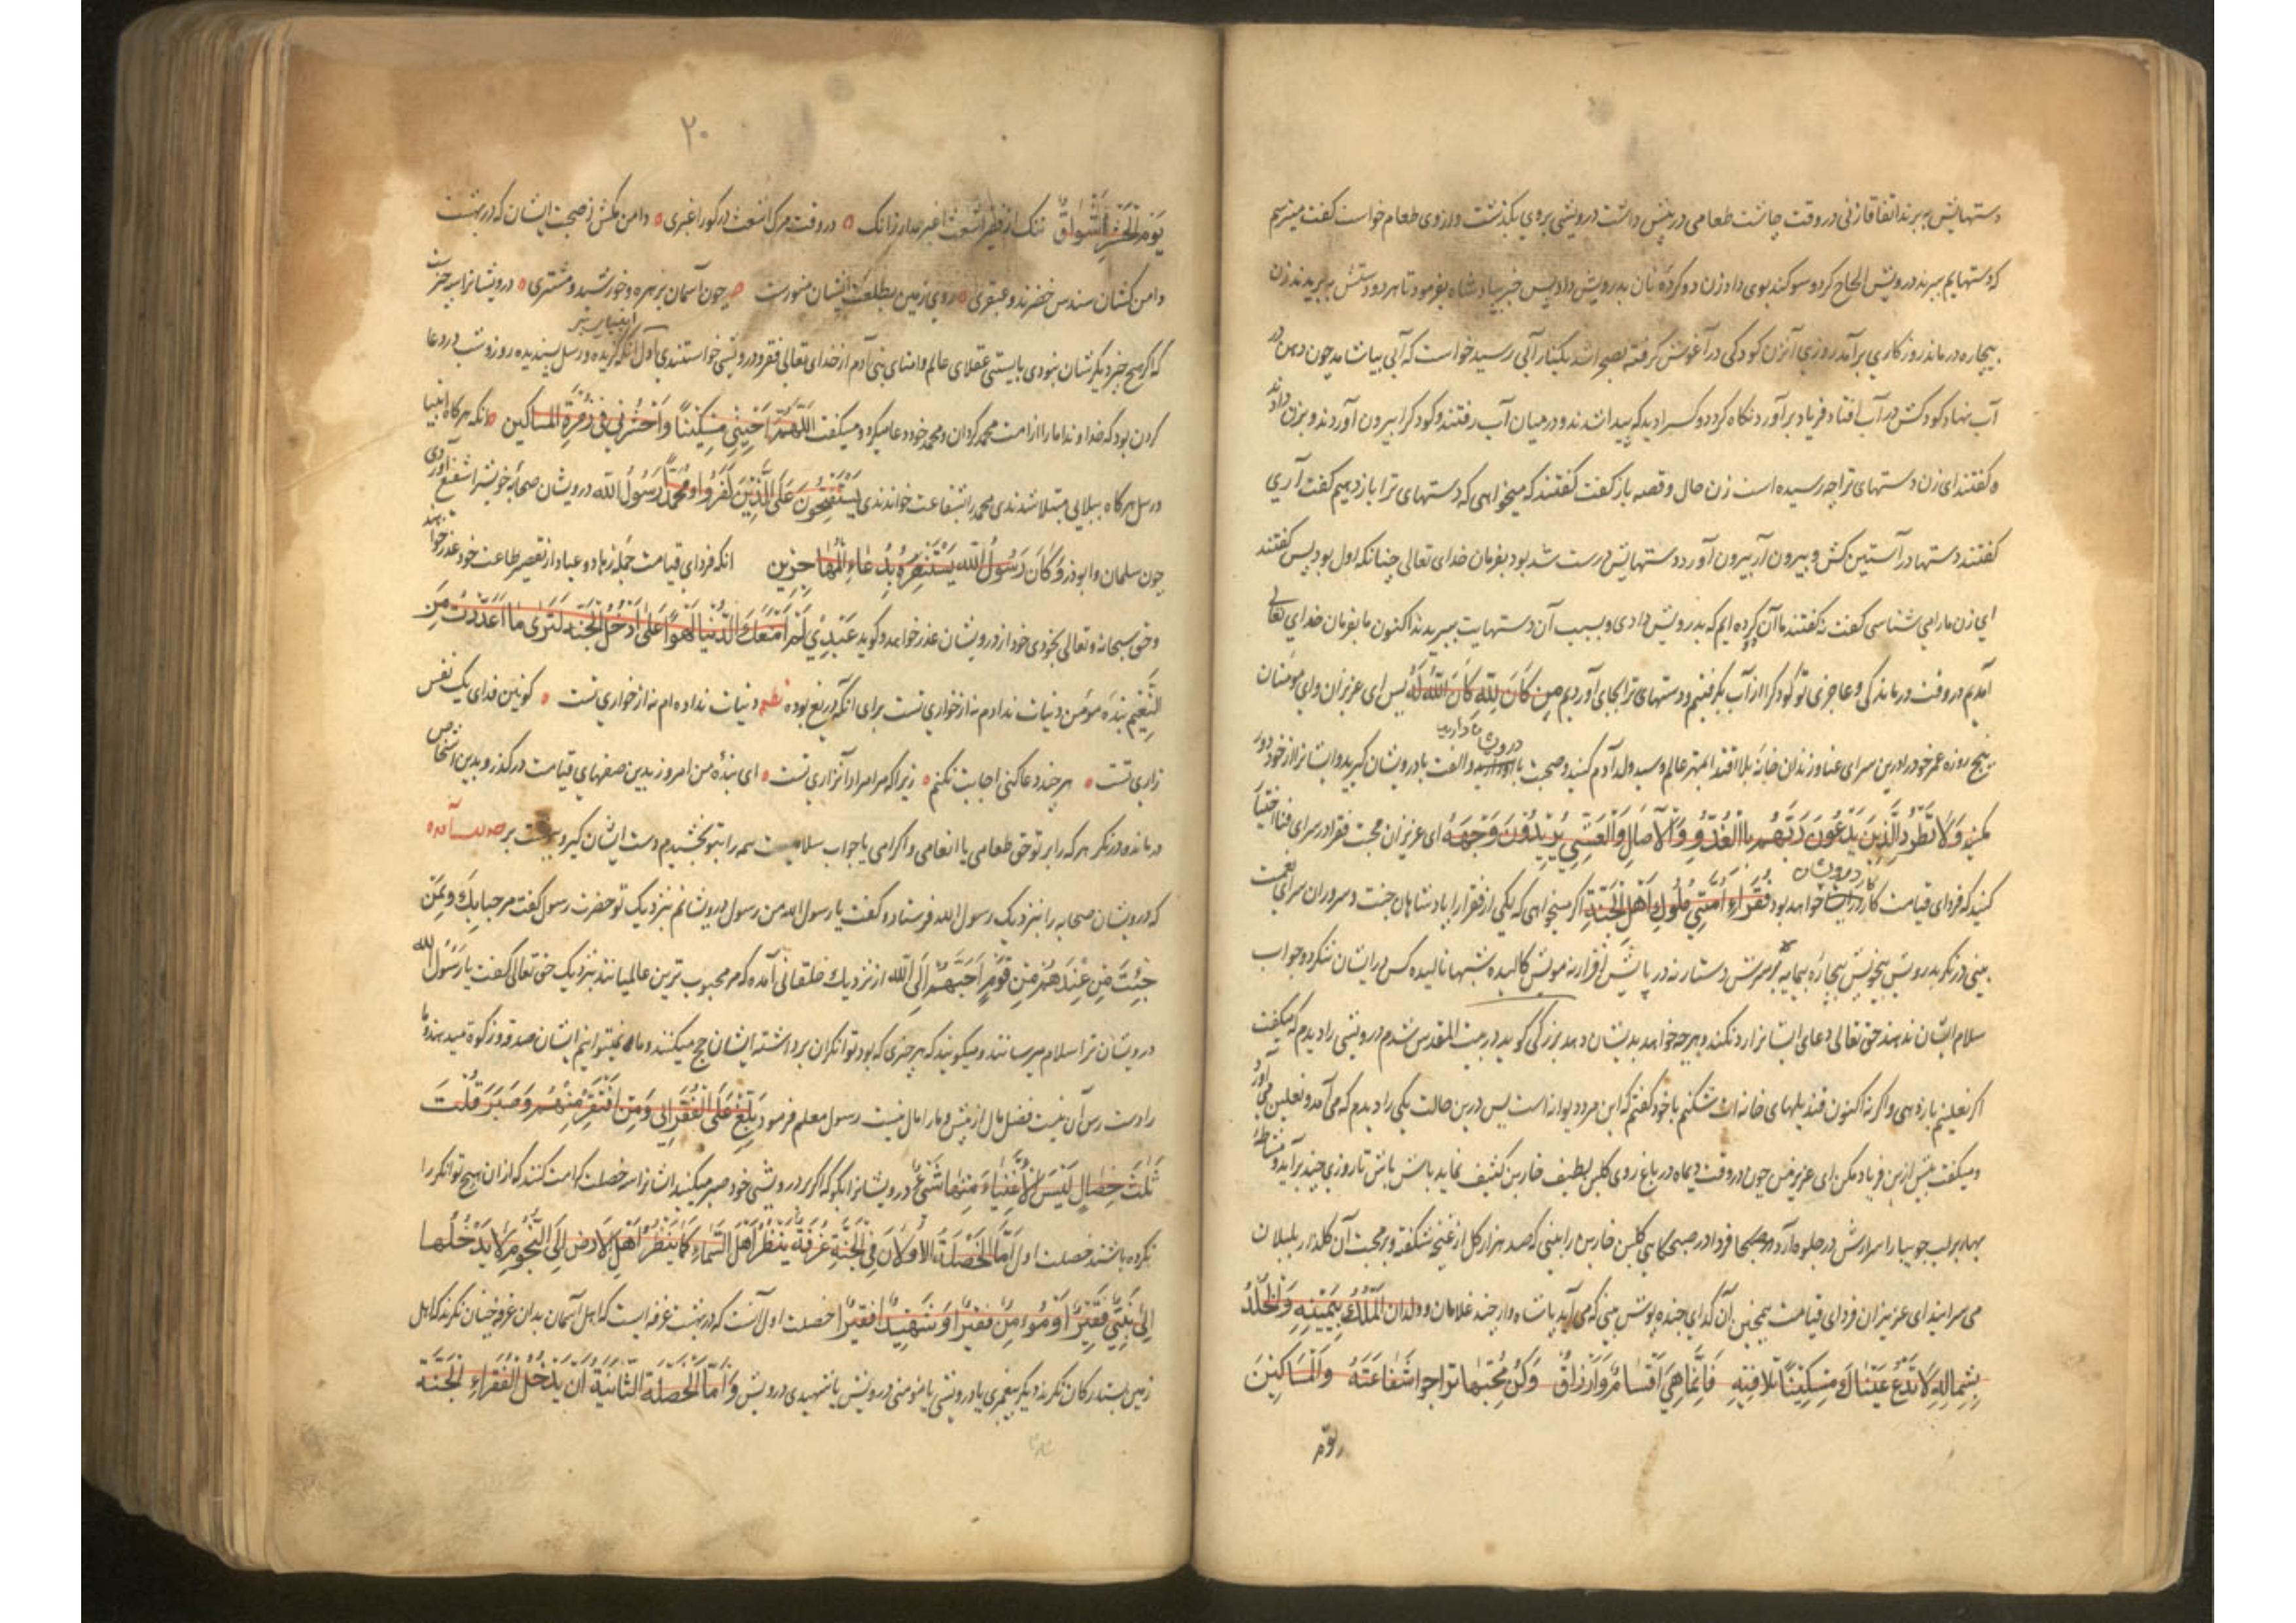 دستهایش ببرند اتفاقا زنی در وقت چاشت طعامی در پیش داشت درویشی بروی بگذشت و آرزوی طعام خواست گفت میترسم
که دستهایم ببرند درویش الحاح کرد و سوگند بوی داد زن دو کرده نان بدرویش داد پس خبر بپادشاه بفرمود تا هر دو دستش ببریدند زن
بیچاره درماند روزگاری برآمد روزی آنزن کودکی در آغوش گرفته بصحرا شد بکنار آبی رسید خواست که آبی بیاشامد چون دهن در
آب نهاد کودکش در آب افتاد فریاد برآورد نگاه کرد دو کس را دید که پیدا شدند و در میان آب رفتند و کودک را بیرون آوردند و بزن دادند
و گفتند ای زن دستهای ترا چه رسیده است زن حال و قصه باز گفت گفتند که میخواهی که دستهای ترا باز دهیم گفت آری
گفتند دستها در آستین کش و بیرون آر بیرون آورد دستهایش درست شد بود بفرمان خدای تعالی چنانکه اول بود پس گفتند
ای زن ما را می شناسی گفت نه گفتند ما آن کرده ایم که بدرویش دادی و بسبب آن دستهایت ببریدند اکنون ما بفرمان خدای تعالی
آمدیم در وقت درماندگی و عاجزی تو کودک را از آب برگرفتیم و دستهای ترا بجای آوردیم من کان لله کان الله له پس ای عزیزان و ای مومنان
پنج روزه عمر خود را درین سرای عنا و زندان خانه بلا اقتدا بمهتر عالم و سید ولد آدم کنید و صحبت با درویشان دارید و الفت با درویشان گیرید و ایشانرا از خود دور
مکنید ولا تطرد الذین یدعون ربهم بالغدو والآصال والعشی یریدون وجهه ای عزیزان محبت فقرا در سرای فنا اختیار
کنید که فردای قیامت کار درویشان خواهد بود فقراء امتی ملوک اهل الجنة اگر میخواهی که یکی از فقرا را پادشاهان جنت و سروران سرای نعمت
بینی در نگر بدرویش بیخویش بیچاره بیمایه بر سرش دستار نه در پایش افزار نه مویش کالیده شبها نالیده کس در ایشان ننگرد و جواب
سلام ایشان ندهند حق تعالی دعای ایشانرا رد نکند و هر چه خواهند بدیشان دهد بزرگی گوید در بیت المقدس شدم درویشی را دیدم که میگفت
اگر نعلینم باز دهی و اگر نه اکنون قندیلهای خانه ات شکنم با خود گفتم که این مرد دیوانه است پس درین حالت یکی را دیدم که می آمد و نعلین می آورد
و میگفت بیش ازین فریاد مکن ای عزیز من چون در وقت دیماه در باغ روی گلبن لطیف خاربن کثیف نماید باش باش تا روزی چند برآید و مشاطه
بهار بر لب جویبارا سرارش در جلوه آرد فردا در صبحگاهی گلبن خاربن را بینی که صد هزار گل از غنچه شکفته و بر محبت آن گلزار بلبلان
می سرایند ای عزیزان فردای قیامت همچنین آن گدای جنده پوش بینی که می آید پاشاه وار چند غلامان و ولدان الملک بیمینه والخلد
بشماله لا تدع عیناک مسکینا تلاقیه فانما هی اقسام وارزاق وکن محبا تراجوا شفاعته والمساکین
یوم
۲۰
یوم الحشر اشواق ننگ از فقیر اشعث اغبر مدار زانک ٥ در وقت مرگ اشعث در گور اغبری ٥ دامن مکش ز صحبت ایشان که در بهشت
دامن کشان سندس خضرند و عبقری ٥ روی زمین بطلعت ایشان منورست چون آسمان بزهره و خورشید و مشتری ٥ درویشانرا سه چیزست
که اگر هیچ چیز دیگرشان نبودی بایستی عقلای عالم و امنای بنی آدم از خدای تعالی فقر و درویشی خواستندی اول آنکه انبیای گزیده و رسل پسندیده روز و شب در دعا
کردن بود که خداوندا ما را از امت محمد گردان و محمد خود دعا میکرد و میگفت اللهم احینی مسکینا واحشرنی فی زمرة المساکین آنکه هر گاه انبیا
و رسل هر گاه ببلایی مبتلا شدندی محمد را بشفاعت خواندندی یستفتحون علی الذین کفروا و محمد رسول الله درویشان صحابه خویشرا شفیع آوردی
چون سلمان و ابوذر وکان رسول الله یستنصره بدعاء المهاجرین آنکه فردای قیامت جمله زهاد و عباد از تقصیر طاعت خود عذر خواهند
و حق سبحانه و تعالی بخودی خود از درویشان عذر خواهد و گوید عبدی لم امنعک الدنیا لهوانا علی ادخل الجنة لتری ما اعددت من
النعیم بنده مومن دنیات ندادم نه از خواری تست برای آنکه دریغ بوده نظم دنیات نداده ام نه از خواری تست ٥ کونین فدای یک نفس
زاری تست ٥ هر چند دعا کنی اجابت نکنم ٥ زیرا که مرا مراد آنزاری تست ٥ ای بنده من امروز بدین صفهای قیامت در گذر و بدین اشخاص
درمانده درنگر هر که را بر تو حق طعامی یا انعامی و اکرامی یا جواب سلامیست همه را بتو بخشیدم دست ایشان گیر و بهشت بر
که درویشان صحابه را بنزدیک رسول الله فرستاد و گفت یا رسول الله من رسول درویشانم بنزدیک تو حضرت رسول گفت مرحبا بک وبمن
جئت من عندهم من قوم احبهم الی الله از نزدیک خلقانی آمده که مر محبوب ترین عالمیانند بنزدیک حق تعالی گفت یا رسول الله
درویشان ترا سلام میرسانند و میگویند که هر چیزی که بود توانگران برداشتند ایشان حج میکنند و ما نمیتوانیم ایشان صدقه و زکوة میدهند و ما
را دست رس آن نیست فضل مال از پیش و ما را مال نیست رسول معلم فرمود بلغ علی الفقرا انی ومن افتقر منهم وصبر فلت
ثلث خصال لیس للاغنیاء منها شیء درویشانرا بگو که اگر بر درویشی خود صبر میکنید ایشانرا سه خصلت کرامت کنند که از ان هیچ توانگر را
نکرده باشند خصلت اول اما الخصلة الاولی ان فی الجنة غرفة ینظر اهل السماء کما ینظر اهل الارض الی النجوم لا یدخلها
الا نبی فقیر او مومن فقیر او شهید فقیر خصلت اول آنست که در بهشت غرفه ایست که اهل آسمان بدان غرفه چنان نگرند که اهل
زمین بستارگان نگرند دیگر پیغمبری یا درویشی یا مومنی درویش یا شهیدی درویش واما الخصلة الثانیة ان یدخل الفقراء الجنة